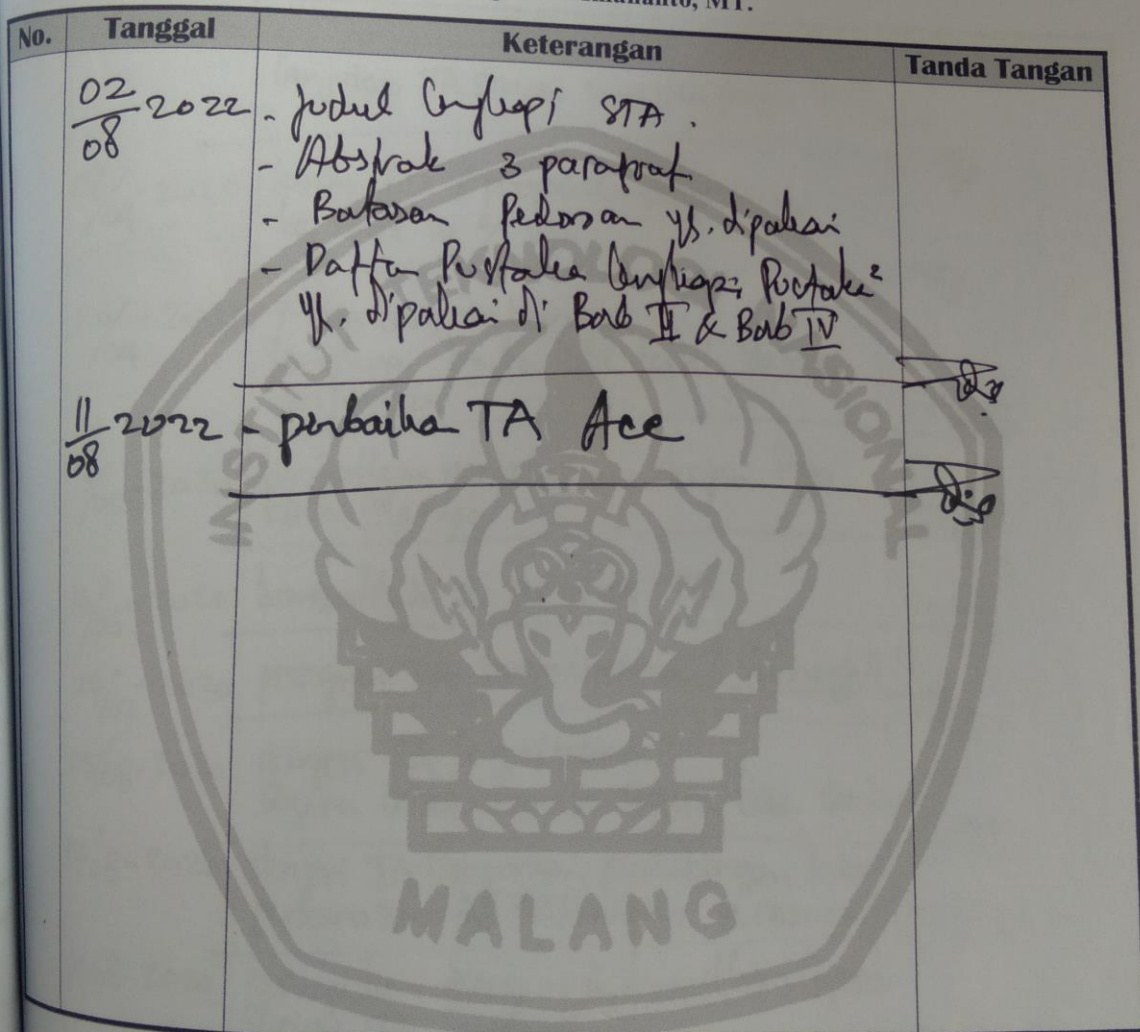 MT.
No. Tanggal Keterangan Tanda Tangan
02/08 2022 - Judul lengkapi STA.
- Abstrak 3 paragraf
- Batasan Pedoman yg. dipakai
- Daftar Pustaka lengkapi Pustaka²
yg. dipakai di Bab II & Bab IV
11/08 2022 - perbaika TA Acc
INSTITUT TEKNOLOGI NASIONAL
MALANG